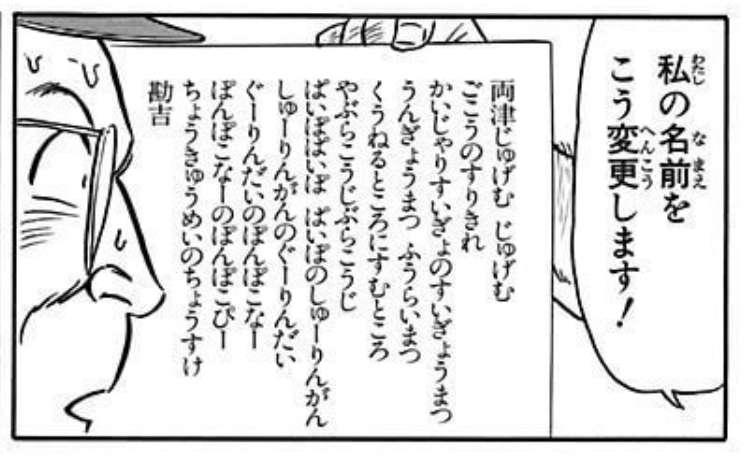 私の名前を
こう変更します！
両津じゅげむ じゅげむ
ごこうのすりきれ
かいじゃりすいぎょのすいぎょうまつ
うんぎょうまつ ふうらいまつ
くうねるところにすむところ
やぶらこうじぶらこうじ
ぱいぽぱいぽ ぱいぽのしゅーりんがん
しゅーりんがんのぐーりんだい
ぐーりんだいのぽんぽこなー
ぽんぽこなーのぽんぽこぴー
ちょうきゅうめいのちょうすけ
勘吉